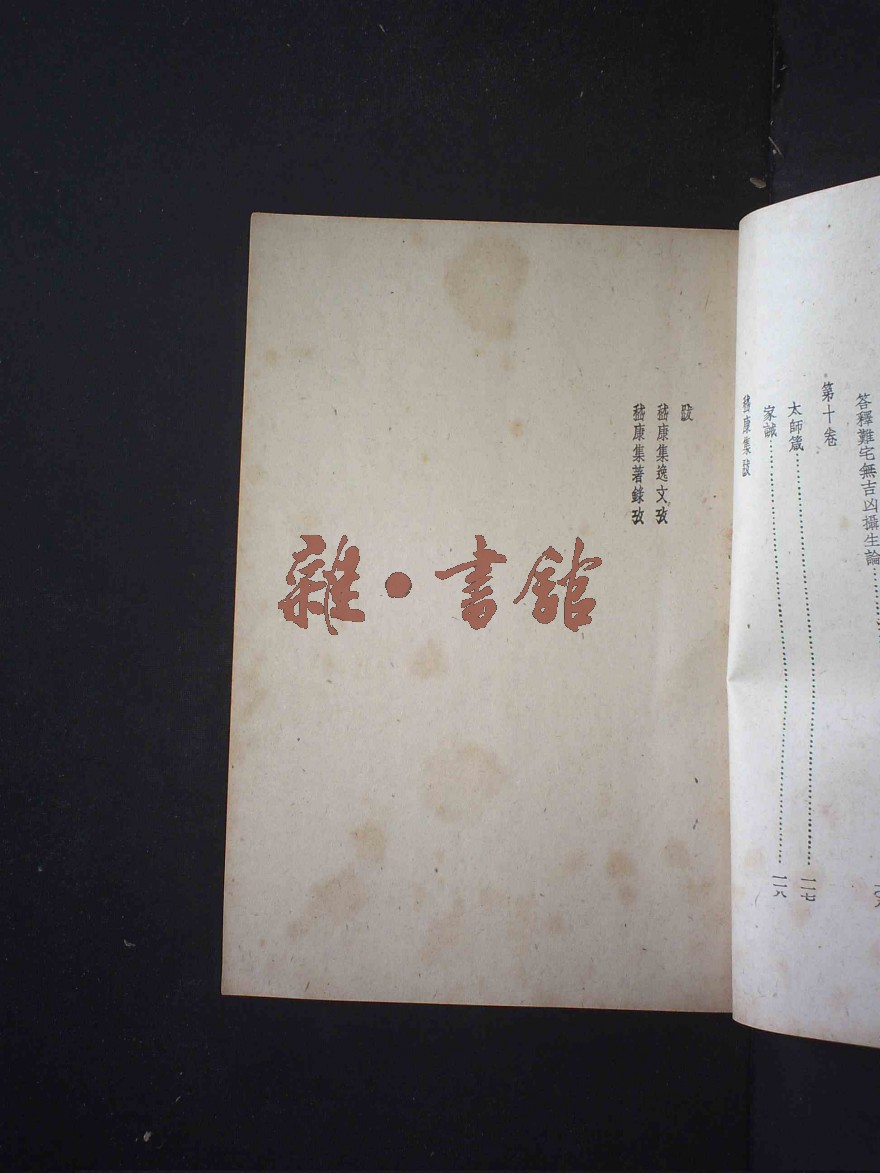 答釋難宅無吉凶攝生論
第十卷
太師箴 一一七
家誡 一一八
嵇康集跋
跋
嵇康集逸文攷
嵇康集著錄攷
雜·書館